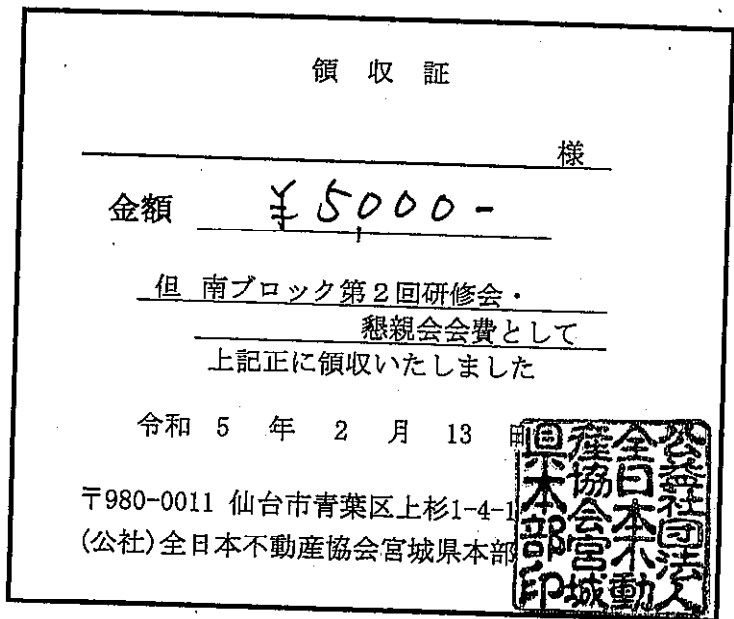 領 収 証
様
金額 ¥5,000-
但 南ブロック第2回研修会・
懇親会会費として
上記正に領収いたしました
令和 5 年 2 月 13 日
〒980-0011 仙台市青葉区上杉1-4-1
(公社)全日本不動産協会宮城県本部
公益社団法人
全日本不動
産協会宮城
県本部印